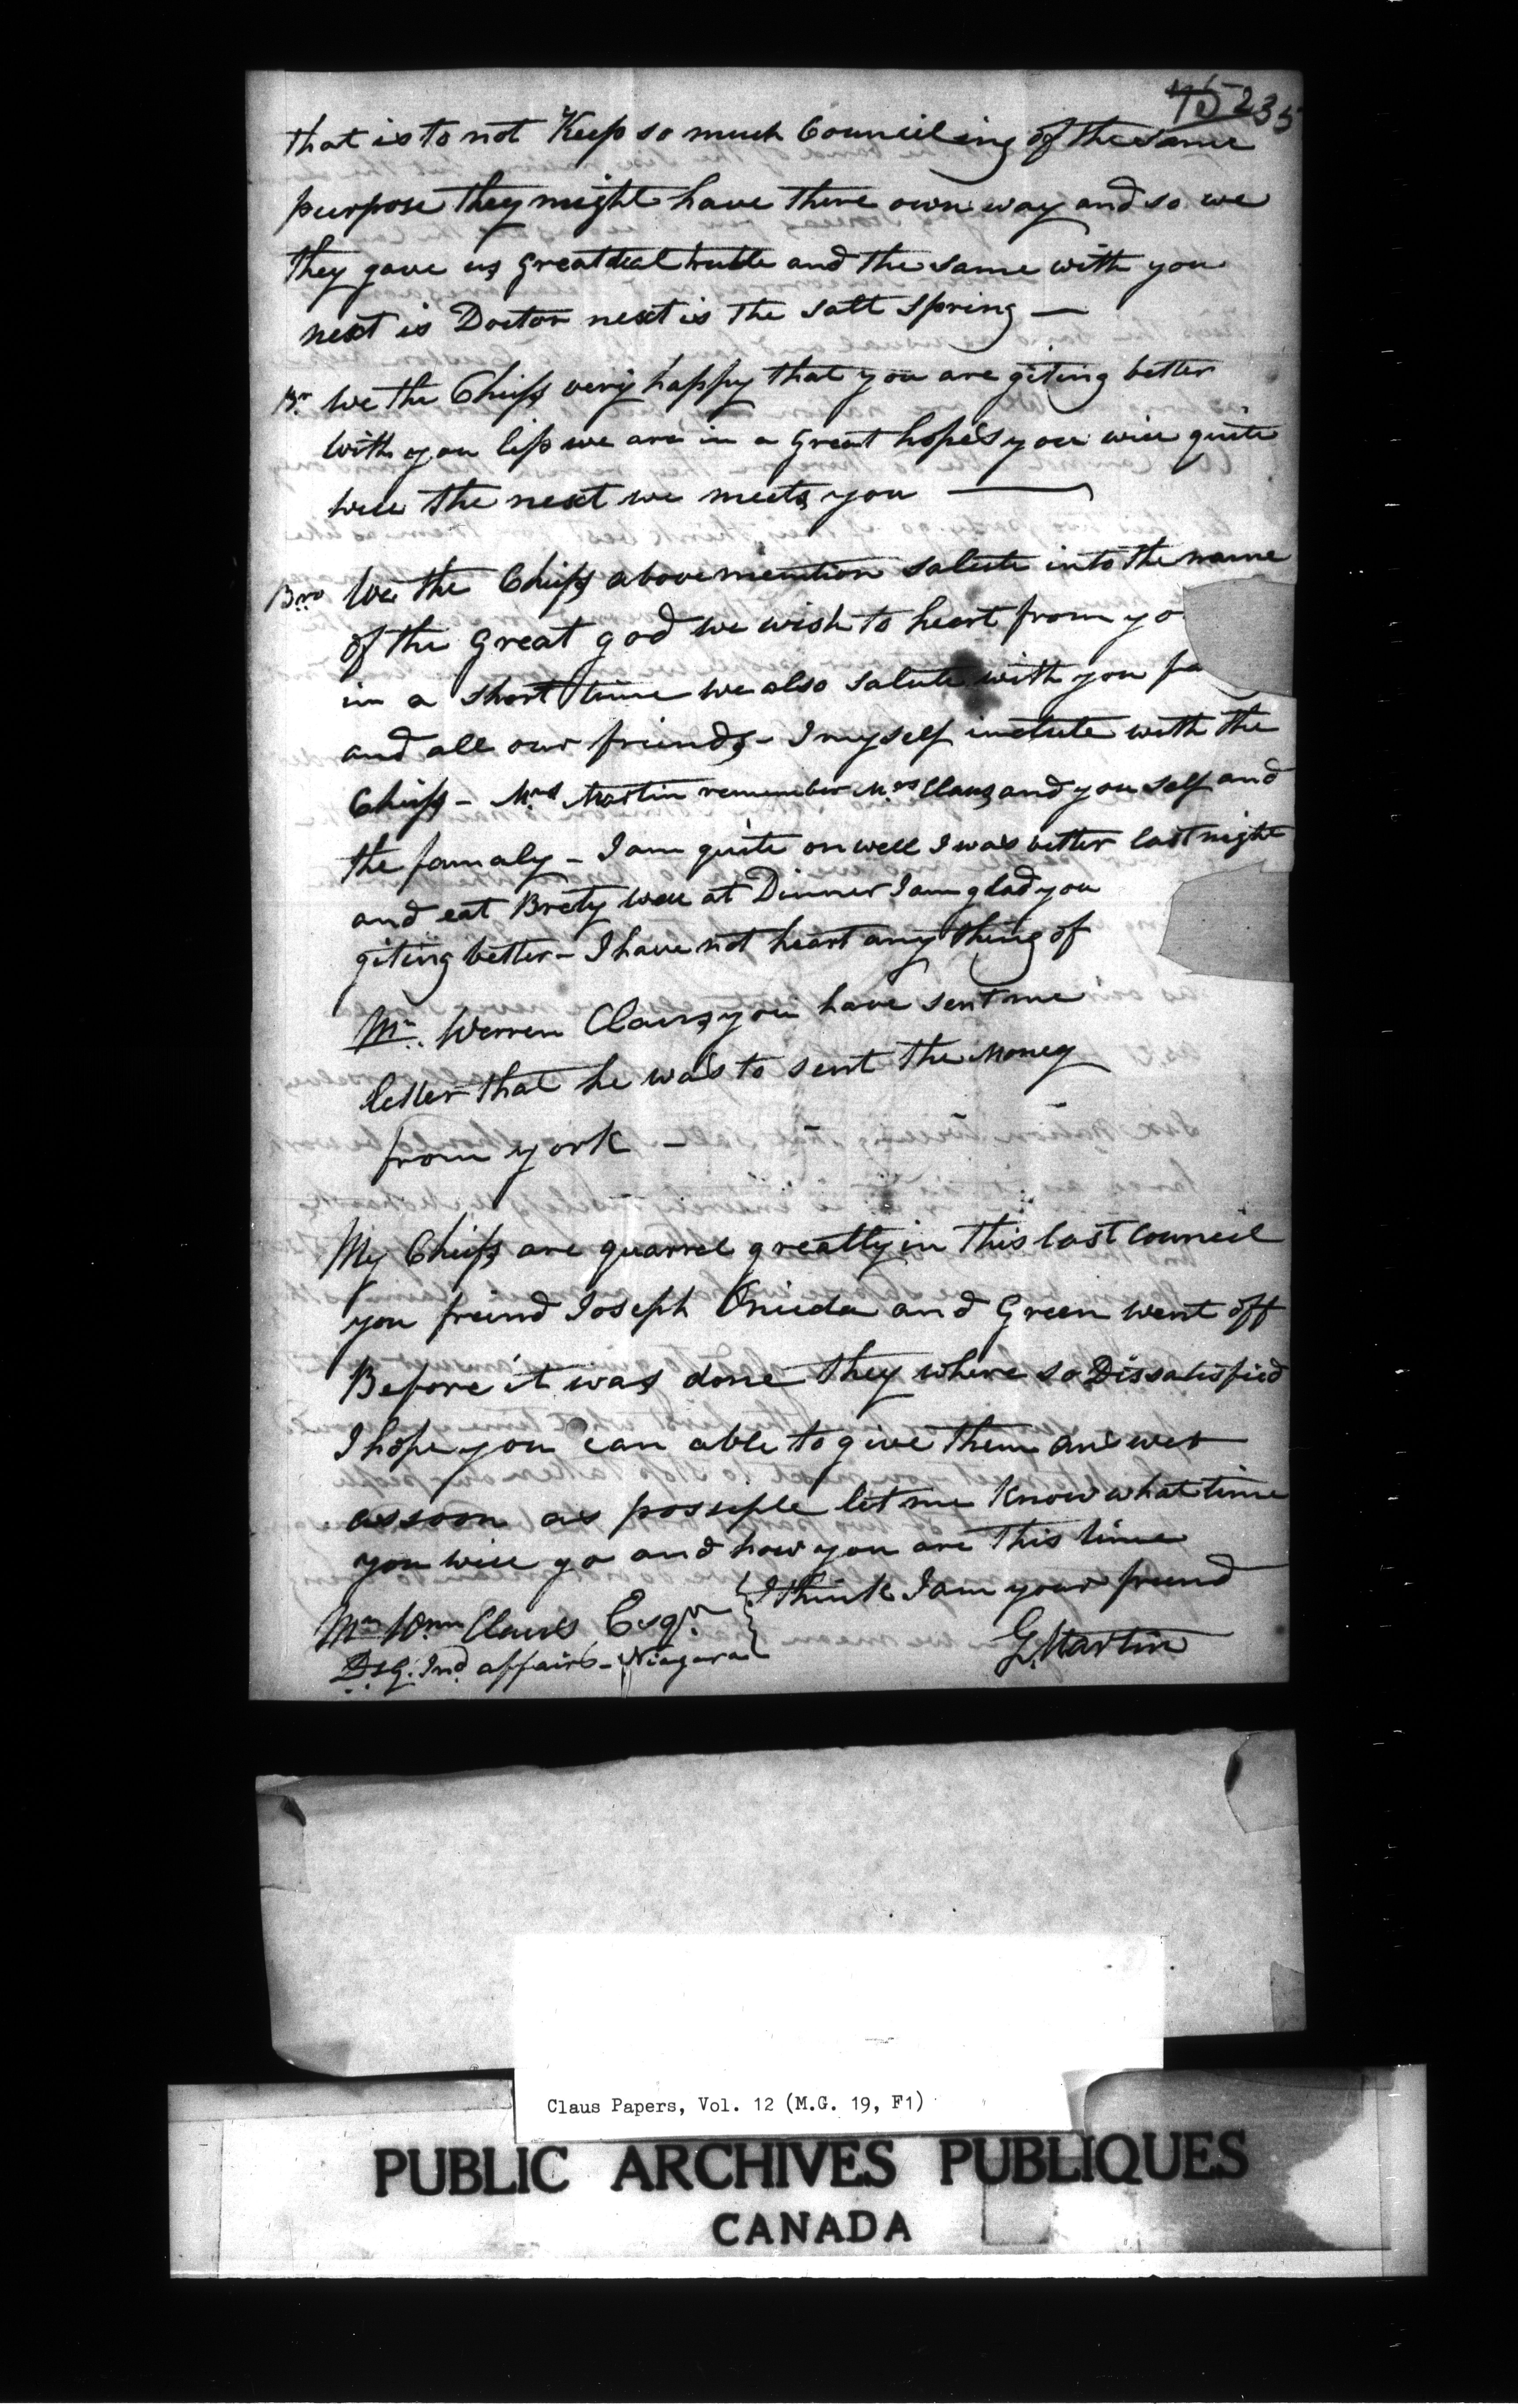 75 235
that is to not Keep so much Counciling of the same
purpose they might have there own way and so we
they gave us great deal truble and the same with you
next is Doctor next is the salt spring —
Br We the Chiefs very happy that you are giting better
with you lips we are in a great hopes you will quite
well the next we meets you —
Bro We the Chiefs above mention salute into the name
of the great god we wish to heart from yo
in a short time we also salute with you fa
and all our friends - I myself inclute with the
Chiefs - Mrs Martin remember Mrs Claus and you self and
the famaly - I am quite onwell I was better last night
and eat Brety well at Dinner I am glad you
giting better - I have not heart any thing of
Mr. Warren Claus you have sent me
letter that he was to sent the Money
from york -
My Chiefs are quarrel greatly in this last Council
you freind Joseph Onieda and Green went off
Before it was done they where so Dissatisfied
I hope you can able to give them answer
as soon as possiple let me know what time
you will go and how you are this time
I think I am your freind
Mr Wm Claus Esqr.
G Martin
D.S.G. Ind. affairs - Niagara
Claus Papers, Vol. 12 (M.G. 19, F1)
PUBLIC ARCHIVES PUBLIQUES
CANADA